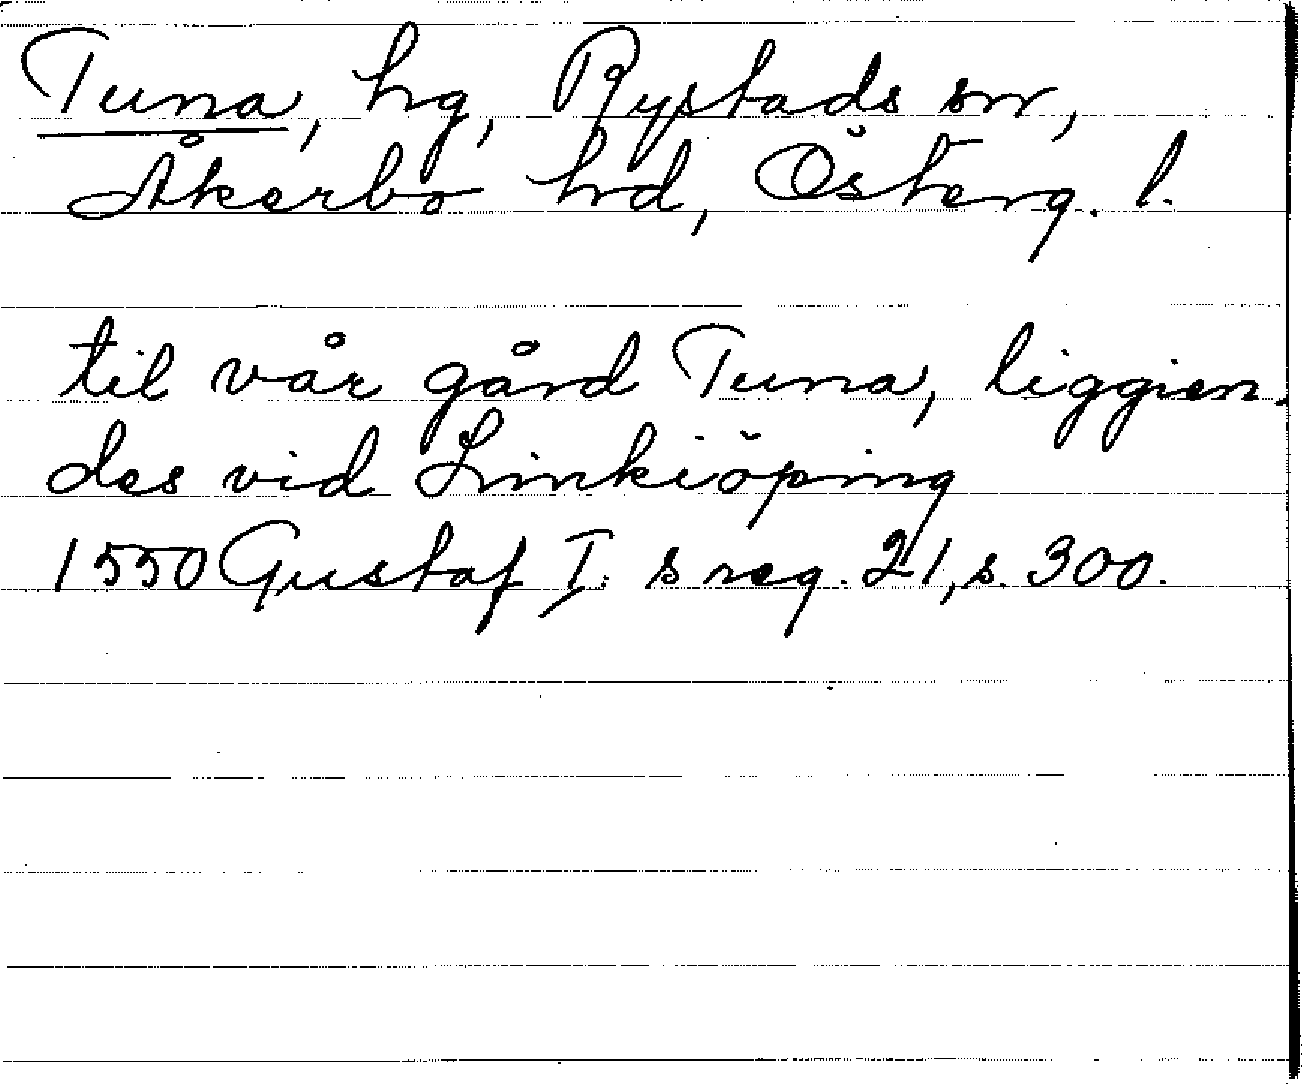 Tuna, hg, Rystads sn,
Åkerbo hd, Österg. l.
til vår gård Tuna, liggien-
des vid Linkiöping
1550 Gustaf I:s reg. 21, s. 300.